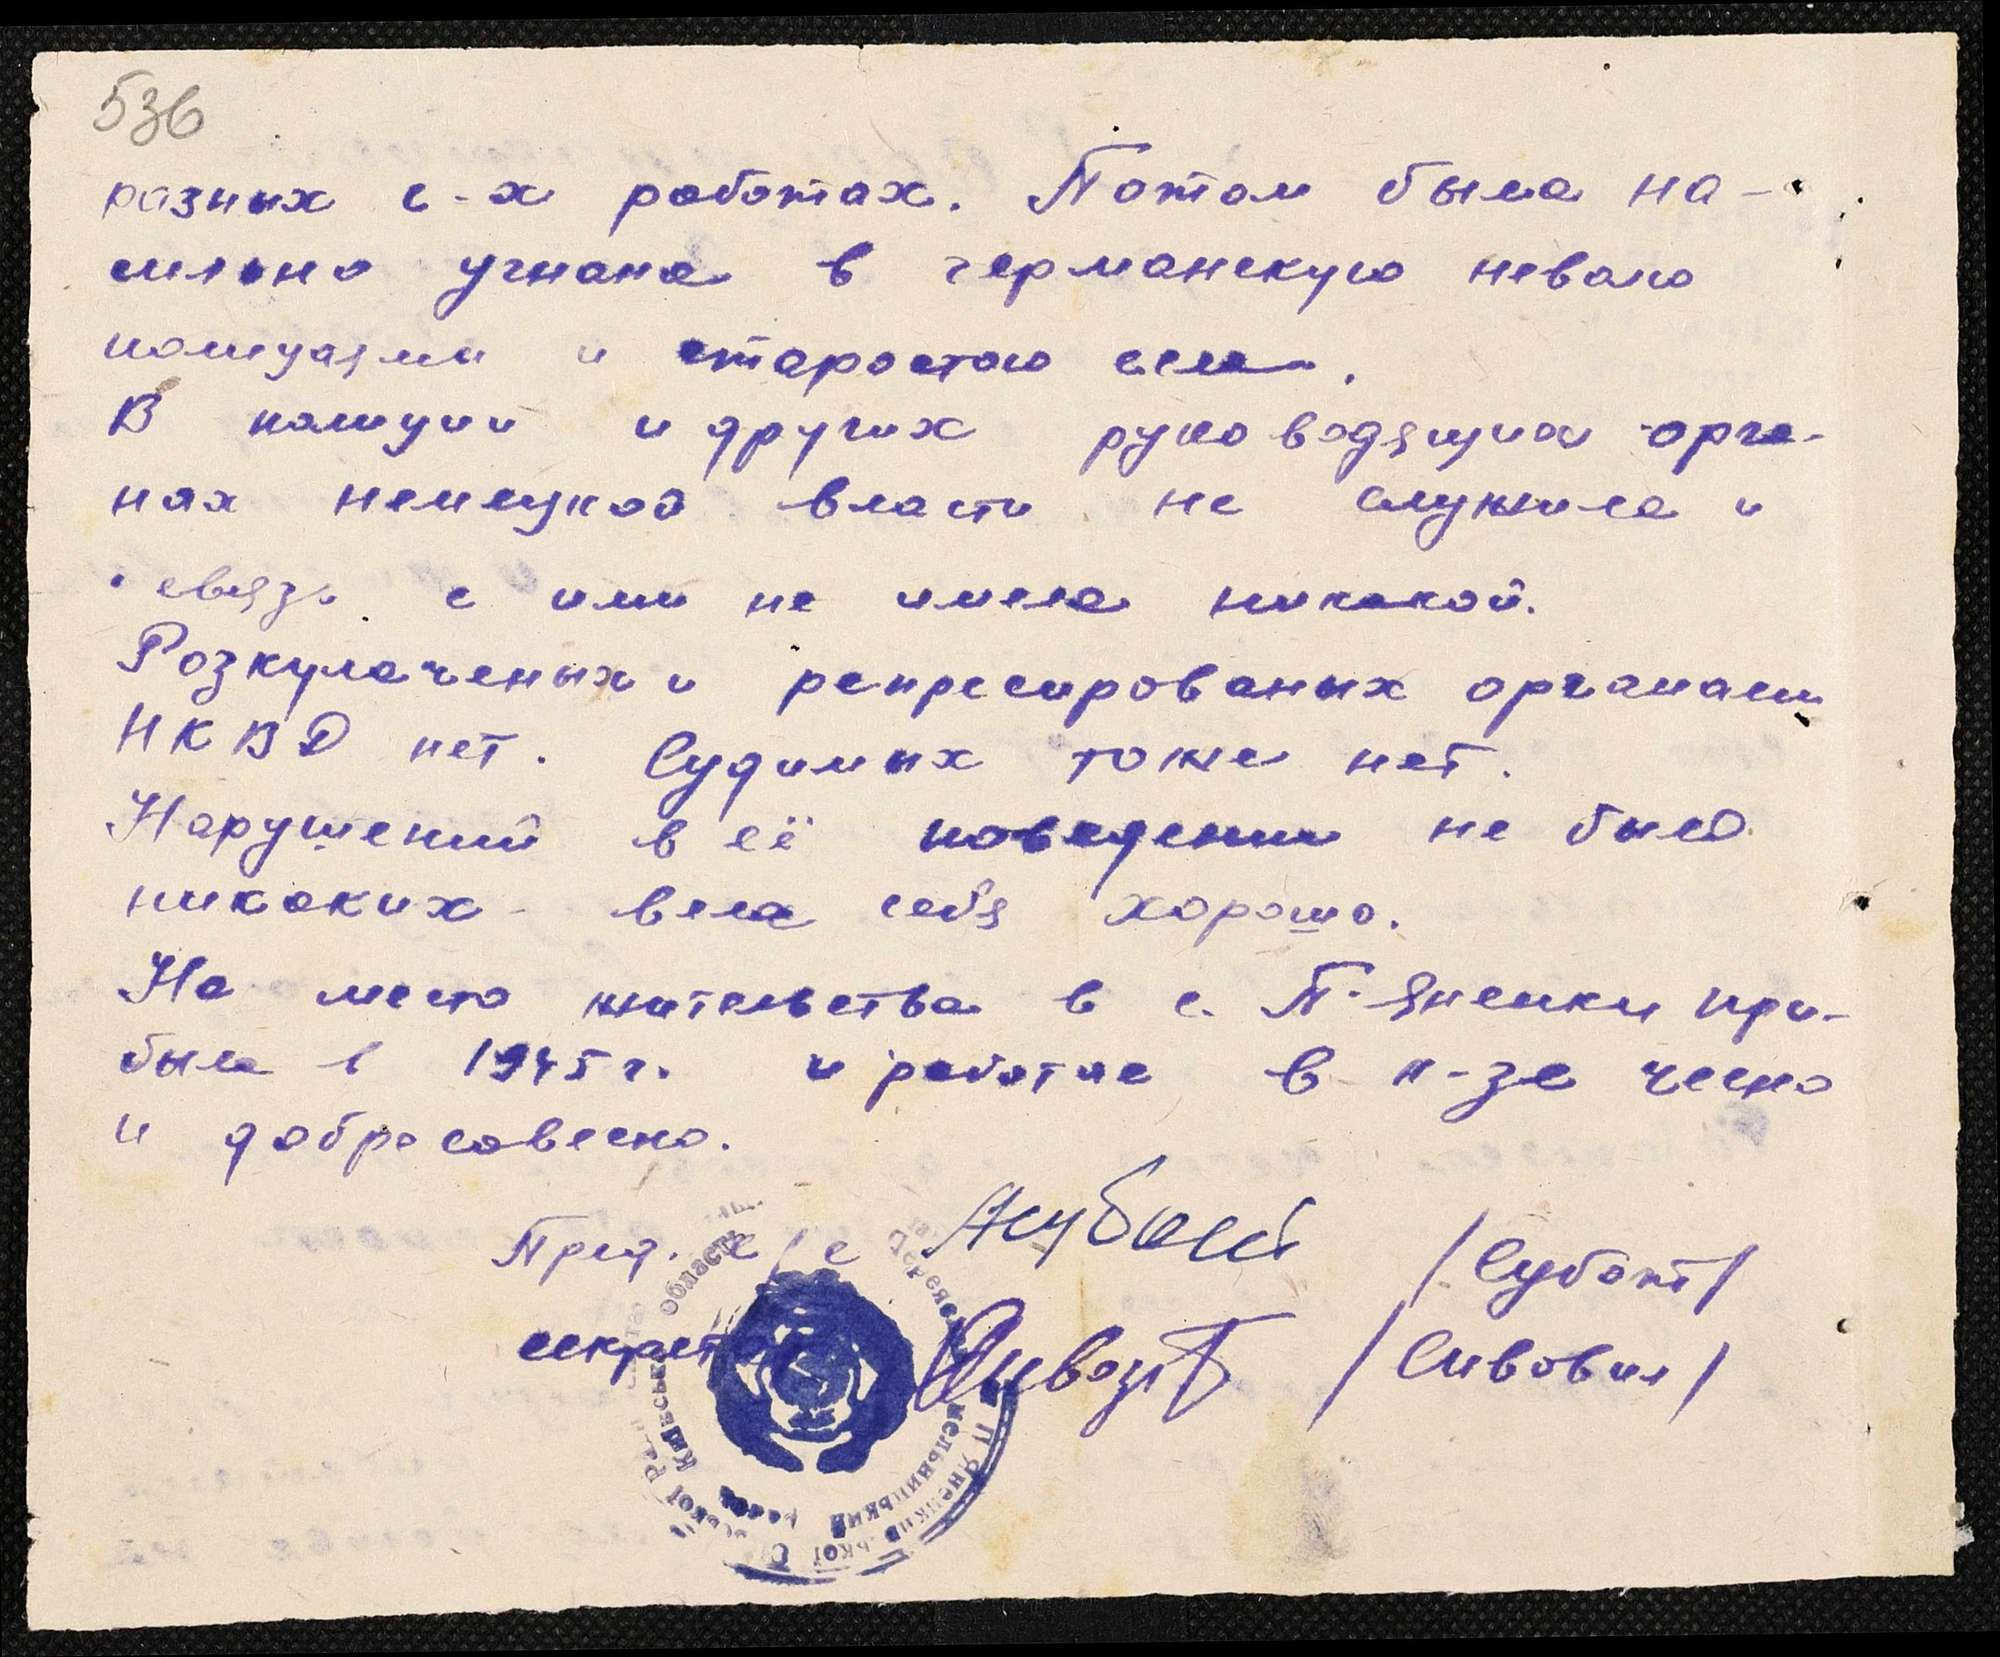 536
разных с-х роботах. Потом была на-
сильно угнана в германскую неволю
полицаями и старостою села.
В полиции и других руководящих орга-
нах немецкой власти не служила и
связи с ими не имела никакой.
Розкулаченых и репресированых органами
НКВД нет. Судимых тоже нет.
Нарушений в её поведении не было
никаких вела себя хорошо.
На место жительства в с. П-Янецки при-
была в 1945 г. и работае в к-зе чесно
и добросовесно.
Пред. с/с /Субот/
секретарь /Сивовил/
Київської області